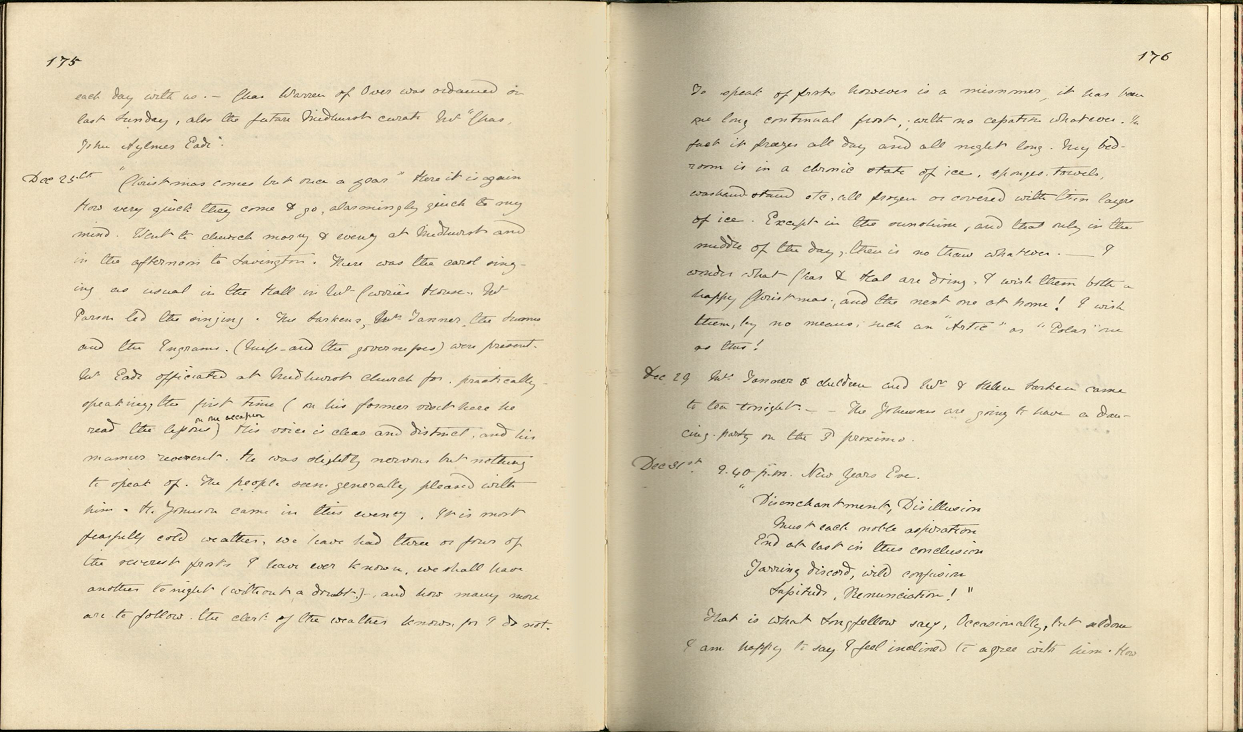 175
each day with us. — Chas Warren of Over was ordained on
last Sunday, also the future Midhurst curate Mr "Chas.
John Aylmer Eade".
Dec 25th "Christmas comes but once a year" Here it is again
How very quick they come & go, alarmingly quick to my
mind. Went to church morng & eveng at Midhurst and
in the afternoon to Lavington. There was the carol sing-
ing as usual in the Hall in Mr Currie's House. Mr
Parson led the singing. The Larkens, Mrs Tanner, the
and the Ingrams. (Miss and the governesses) were present.
Mr Eade officiated at Midhurst Church for, practically
speaking, the first time (on his former visit here he
read the lessons on one occasion) His voice is clear and distinct, and his
manner reverent. He was slightly nervous but nothing
to speak of. The people seem generally pleased with
him. H. Johnson came in this eveng. It is most
fearfully cold weather, we have had three or four of
the severest frosts I have ever known, we shall have
another to night (without a doubt), and how many more
are to follow the clerk of the weather knows, for I do not.
176
To speak of frosts however is a misnomer, it has been
one long continual frost, with no cessation whatever. In
fact it freezes all day and all night long. My bed-
room is in a chronic state of ice, sponges, towels,
washand stand etc. all frozen or covered with thin layers
of ice. Except in the sunshine, and that only in the
middle of the day, there is no thaw whatever. — I
wonder what Chas & Hal are doing. I wish them both a
happy Christmas, and the next one at home! I wish
them, by no means, such an "Artic" or "Polar" one
as this!
Dec 29 Mrs Tanner & children and Mrs & Helen Larken came
to tea tonight — The Johnsons are going to have a dan-
cing-party on the 3d proximo.
Dec 31st 9.40 p.m. New Years Eve.
"Disenchantment, Disillusion
Must each noble aspiration
End at last in this conclusion
Jarring discord, wild confusion
Lassitude, Renunciation!"
That is what Longfellow says, Occasionally, but seldom
I am happy to say I feel inclined to agree with him. How